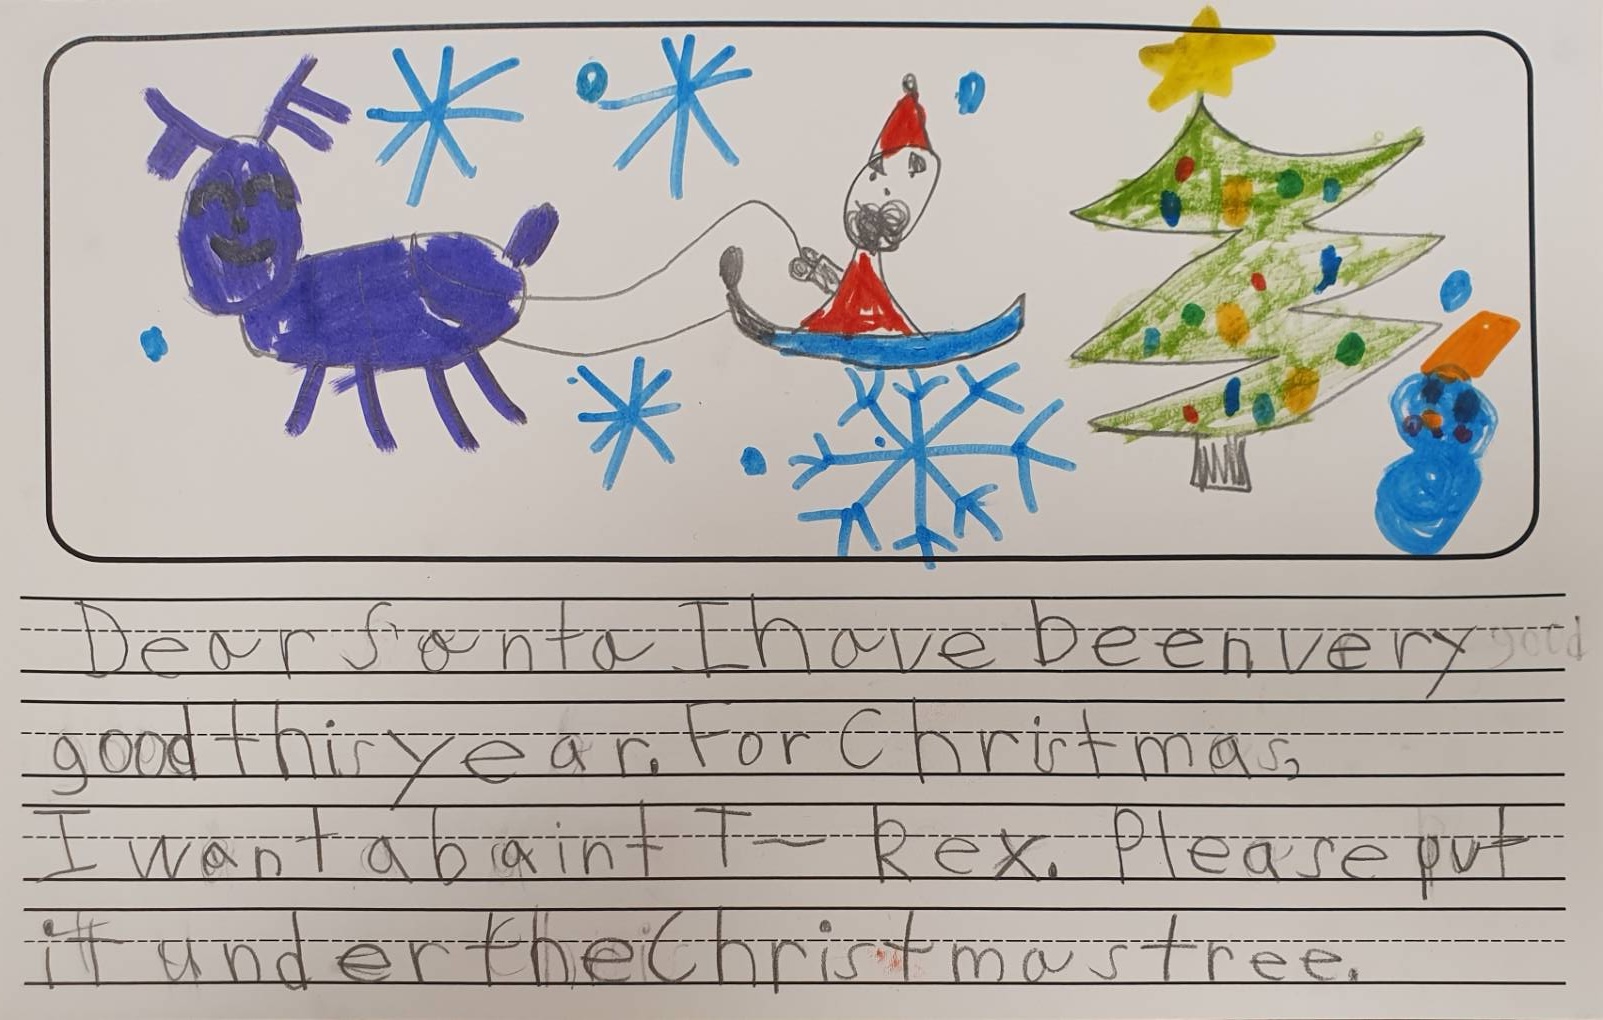 Dear Santa I have been very good
good this year. For Christmas,
I want a baint T-Rex. Please put
it under the Christmas tree.